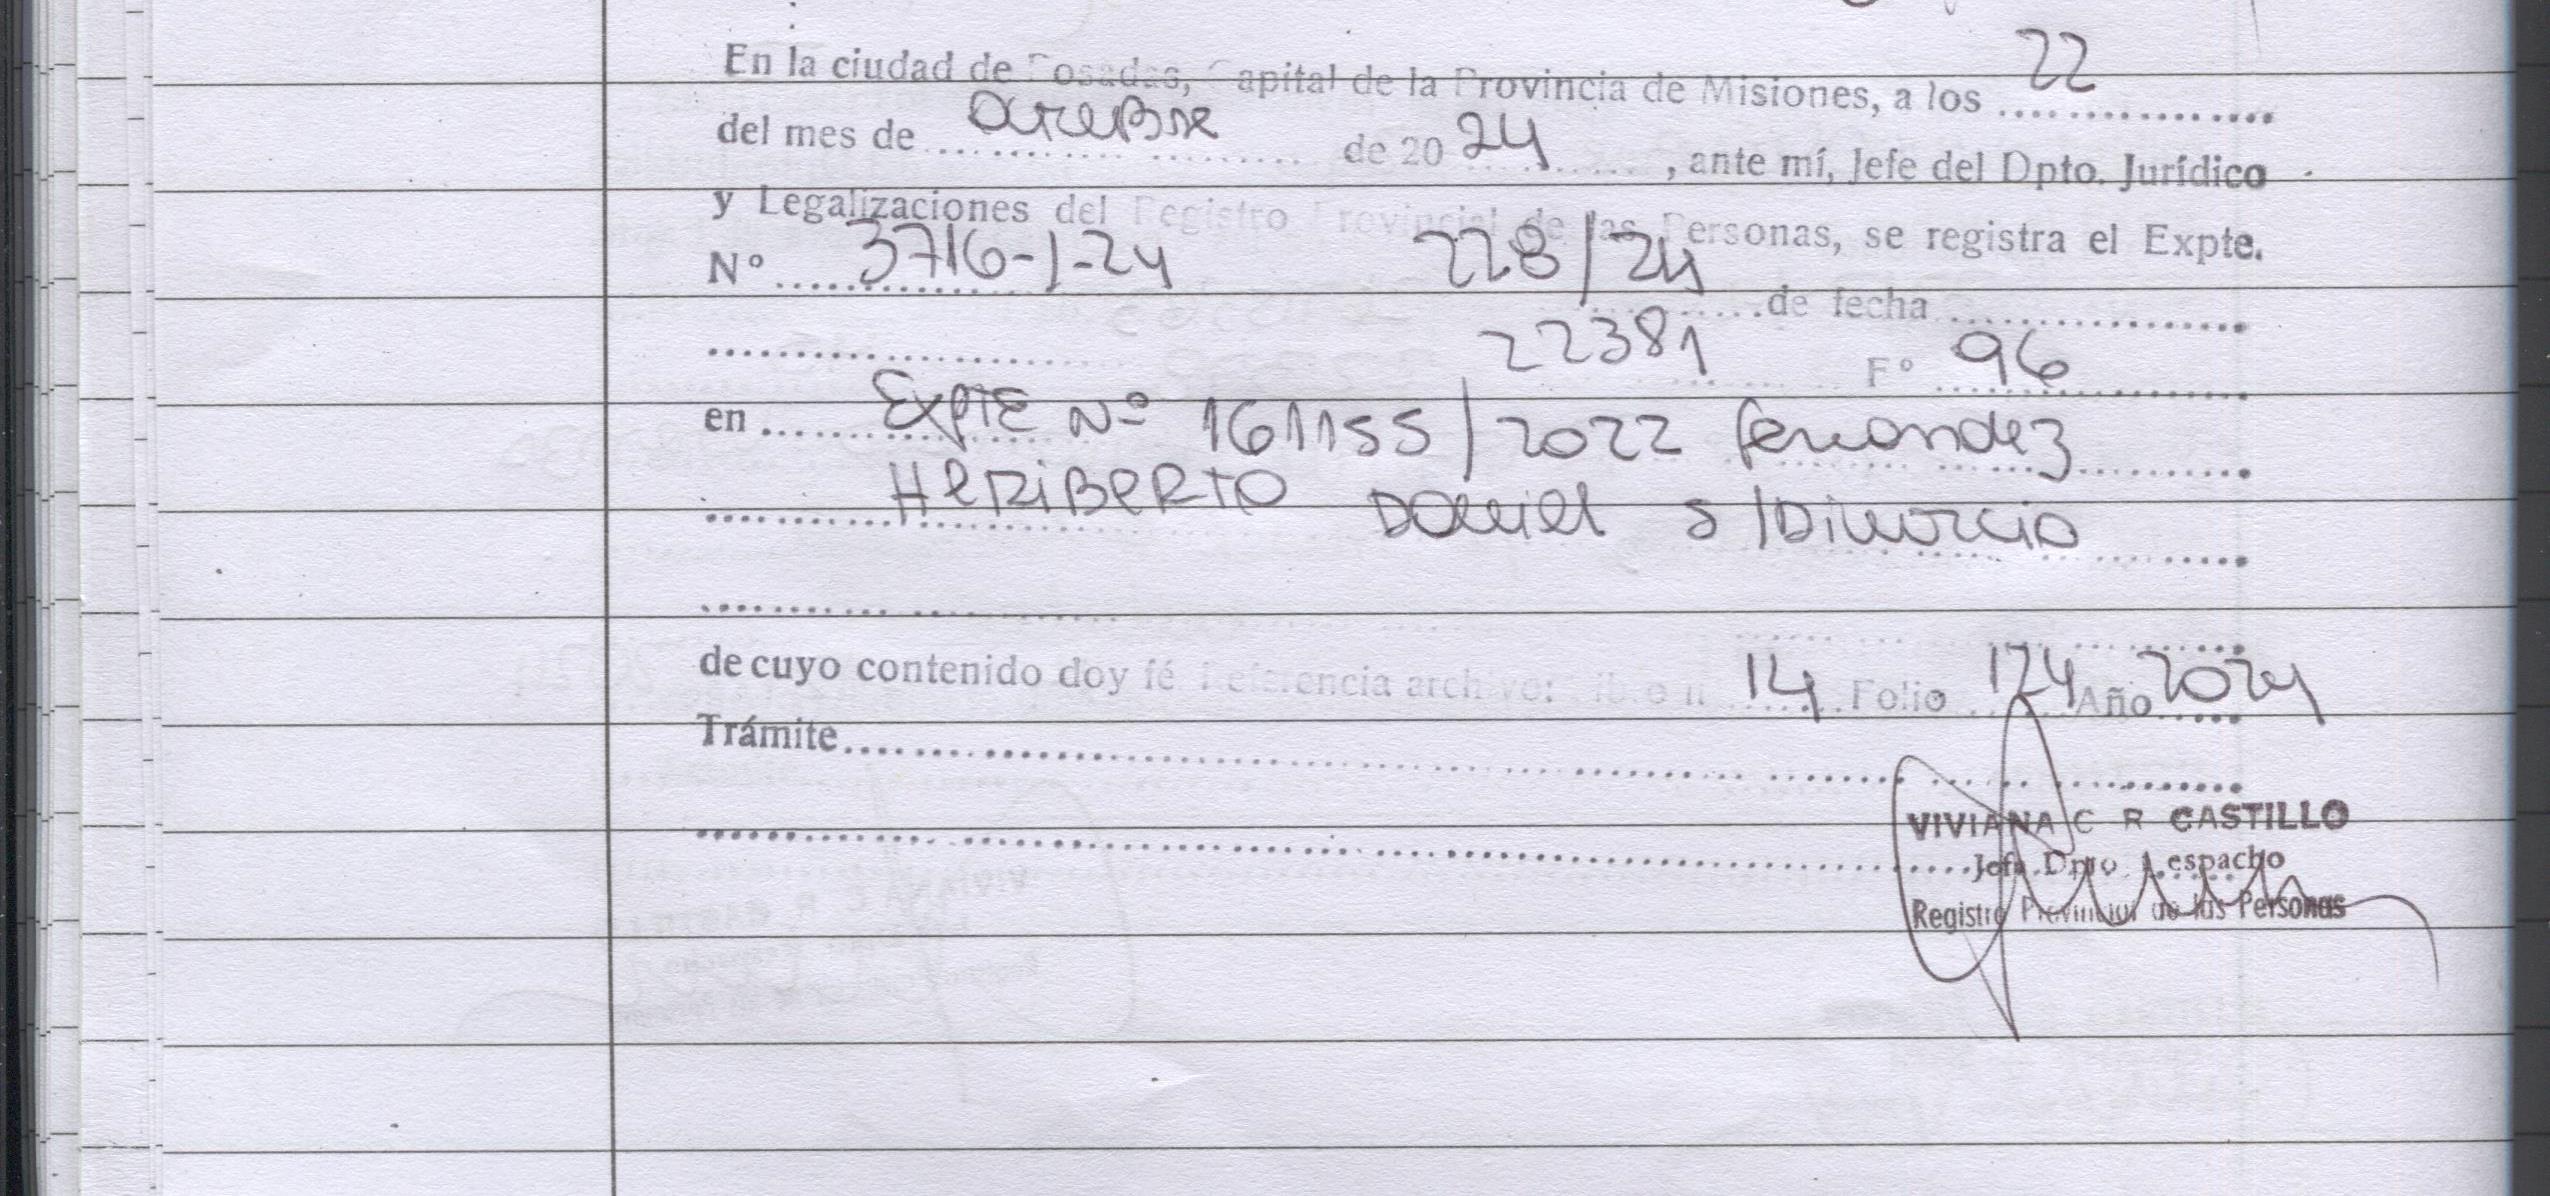 En la ciudad de Posadas, Capital de la Provincia de Misiones, a los 22
del mes de octubre de 2024, ante mí, Jefe del Dpto. Jurídico
y Legalizaciones del Registro Provincial de las Personas, se registra el Expte.
Nº 3716-J-24 228/24 de fecha
22381 Fº 96
en Expte Nº 161155/2022 Fernandez
Heriberto Daniel S/Divorcio
de cuyo contenido doy fé Referencia archivo: libro n 14 Folio 174 Año 2024
Trámite
VIVIANA C R CASTILLO
Jefa Dpto. Despacho
Registro Provincial de las Personas